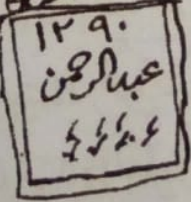 ١٢٩٠
عبدالرحمن